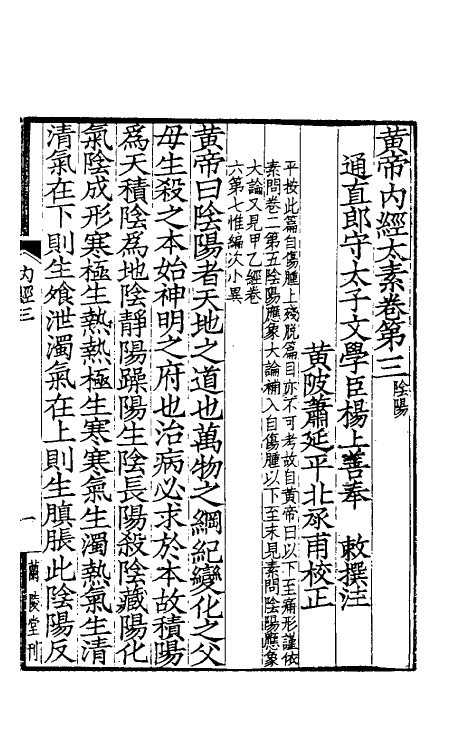 黃帝內經太素卷第三 陰陽
通直郎守太子文學臣楊上善奉 敕撰注
黃陂蕭延平北承甫校正
平按此篇自傷腫上殘脫篇目亦不可考故自黃帝曰以下至痛形謹依
素問卷二第五陰陽應象大論補入自傷腫以下至末見素問陰陽應象
大論又見甲乙經卷
六第七惟編次小異
黃帝曰陰陽者天地之道也萬物之綱紀變化之父
母生殺之本始神明之府也治病必求於本故積陽
爲天積陰爲地陰靜陽躁陽生陰長陽殺陰藏陽化
氣陰成形寒極生熱熱極生寒寒氣生濁熱氣生清
清氣在下則生飧泄濁氣在上則生䐜脹此陰陽反
內經三 一 蘭陵堂刊